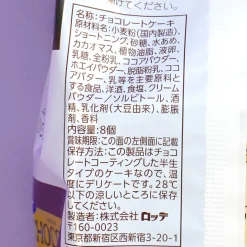 開けてください。
名称:チョコレートケーキ
原材料名:小麦粉(国内製造)、
ショートニング、砂糖、水あめ、
カカオマス、植物油脂、液卵、
乳糖、全粉乳、ココアパウダー、
ホエイパウダー、脱脂粉乳、ココ
アバター、乳等を主要原料と
する食品、洋酒、食塩、クリーム
パウダー/ソルビトール、酒
精、乳化剤(大豆由来)、膨脹
剤、香料
内容量:8個
賞味期限:この面の左側面に記載
保存方法:この製品はチョコ
レートコーティングした半生
タイプのケーキなので、温
度にデリケートです。28℃
以下の涼しいところに保存
してください。
製造者:株式会社 ロッテ
〒160-0023
東京都新宿区西新宿3-20-1